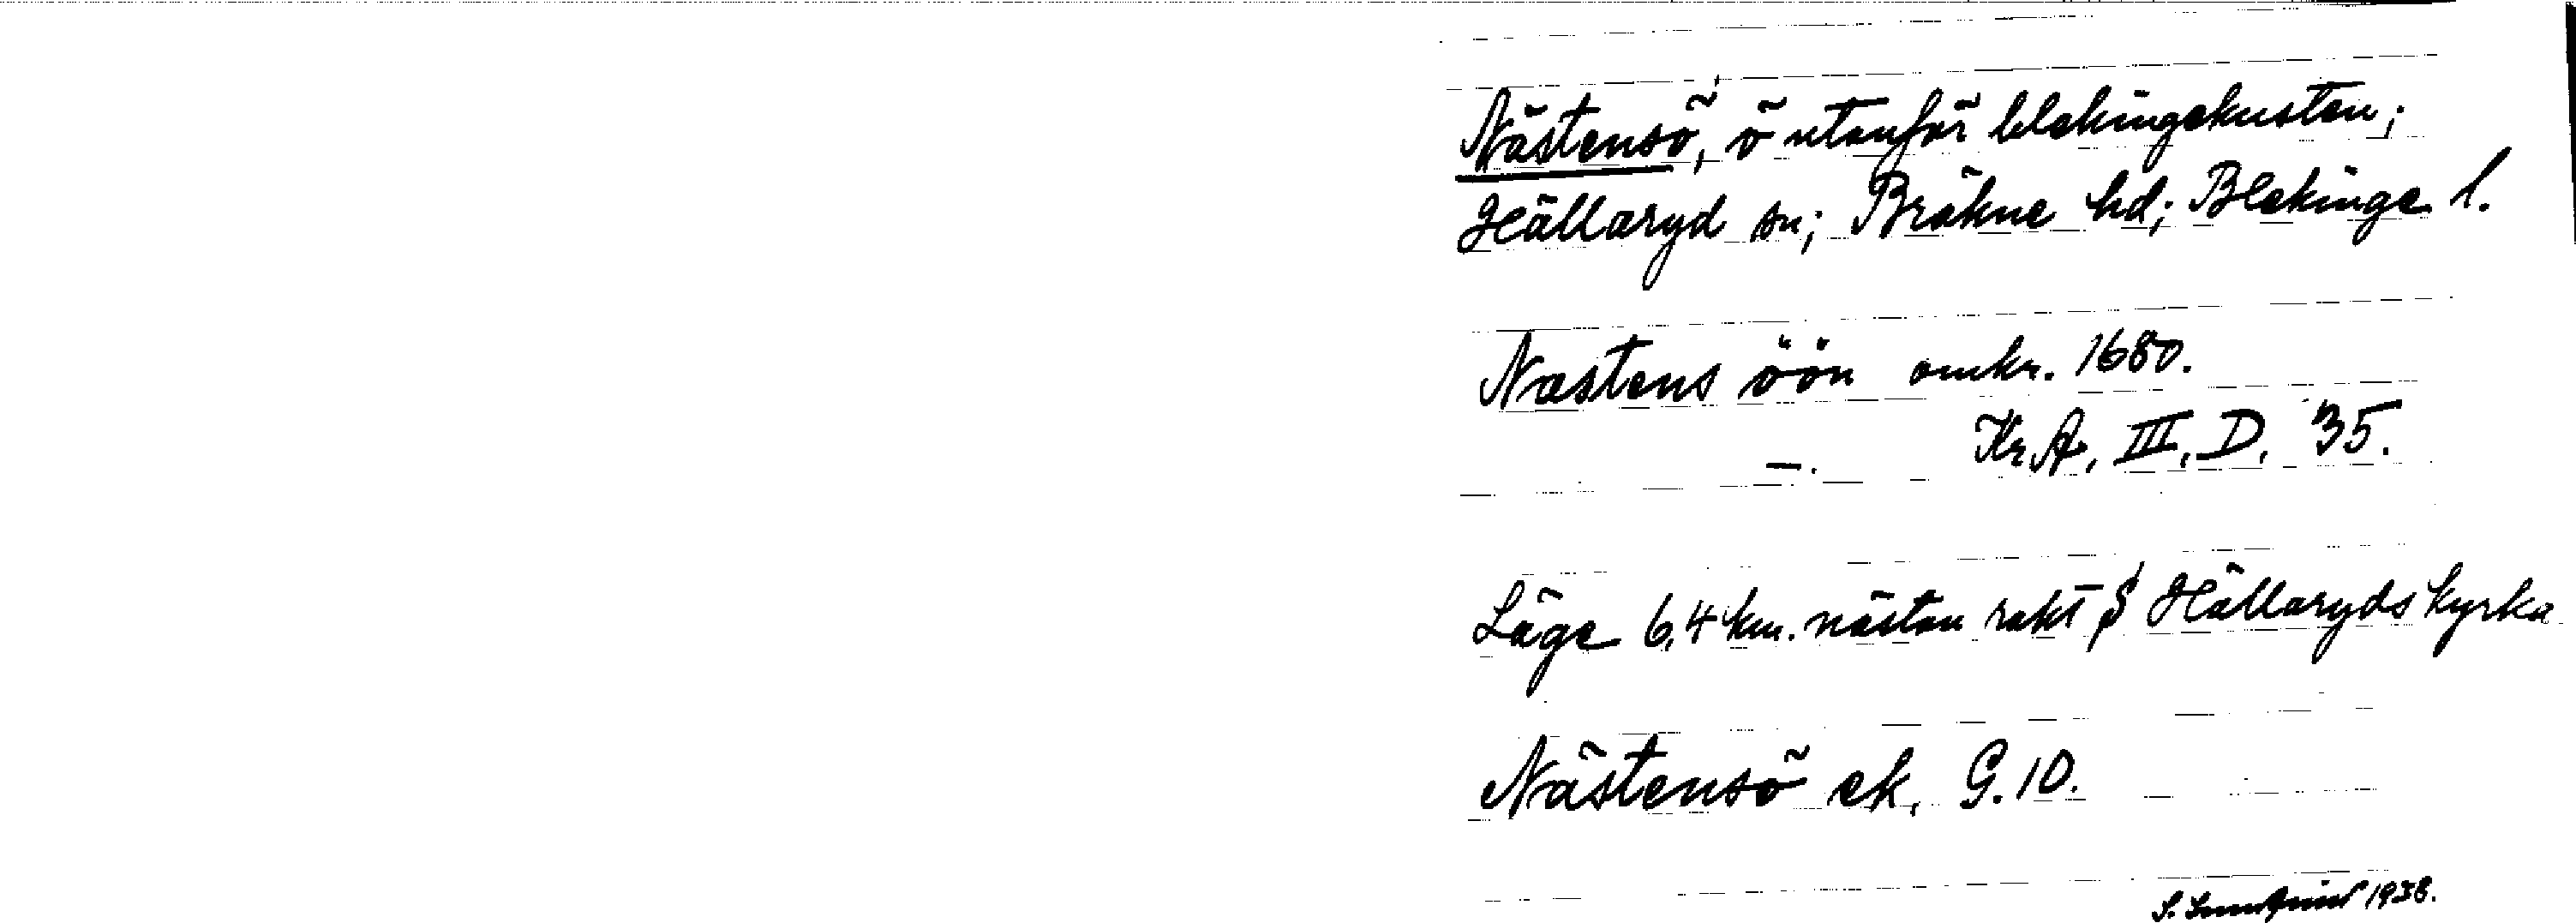 Nästensö, ö utanför blekingekusten;
Hällaryd sn; Bräkne hd; Blekinge l.
Nastens öön omkr. 1680.
—. Kr.A, III, D, 35.
Läge 6,4 km. nästan rakt S Hällaryds kyrka
Nästensö ek. G.10.
S. 1938.